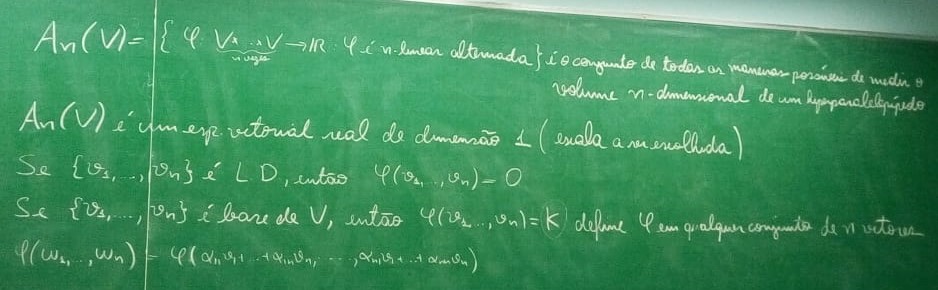 An(V) = { φ: Vx...xV → IR : φ é n-linear alternada } é o conjunto de todas as maneiras possíveis de medir o
n vezes
volume n-dimensional de um hiperparalelepípedo
An(V) é um esp. vetorial real de dimensão 1 (escala a ser escolhida)
Se {v1,...,vn} é LD, então φ(v1,...,vn) = 0
Se {v1,...,vn} é base de V, então φ(v1...,vn) = K define φ em qualquer conjunto de n vetores
φ(w1,...,wn) = φ(α11v1+...+α1nvn,...,αn1v1+...+αnnvn)